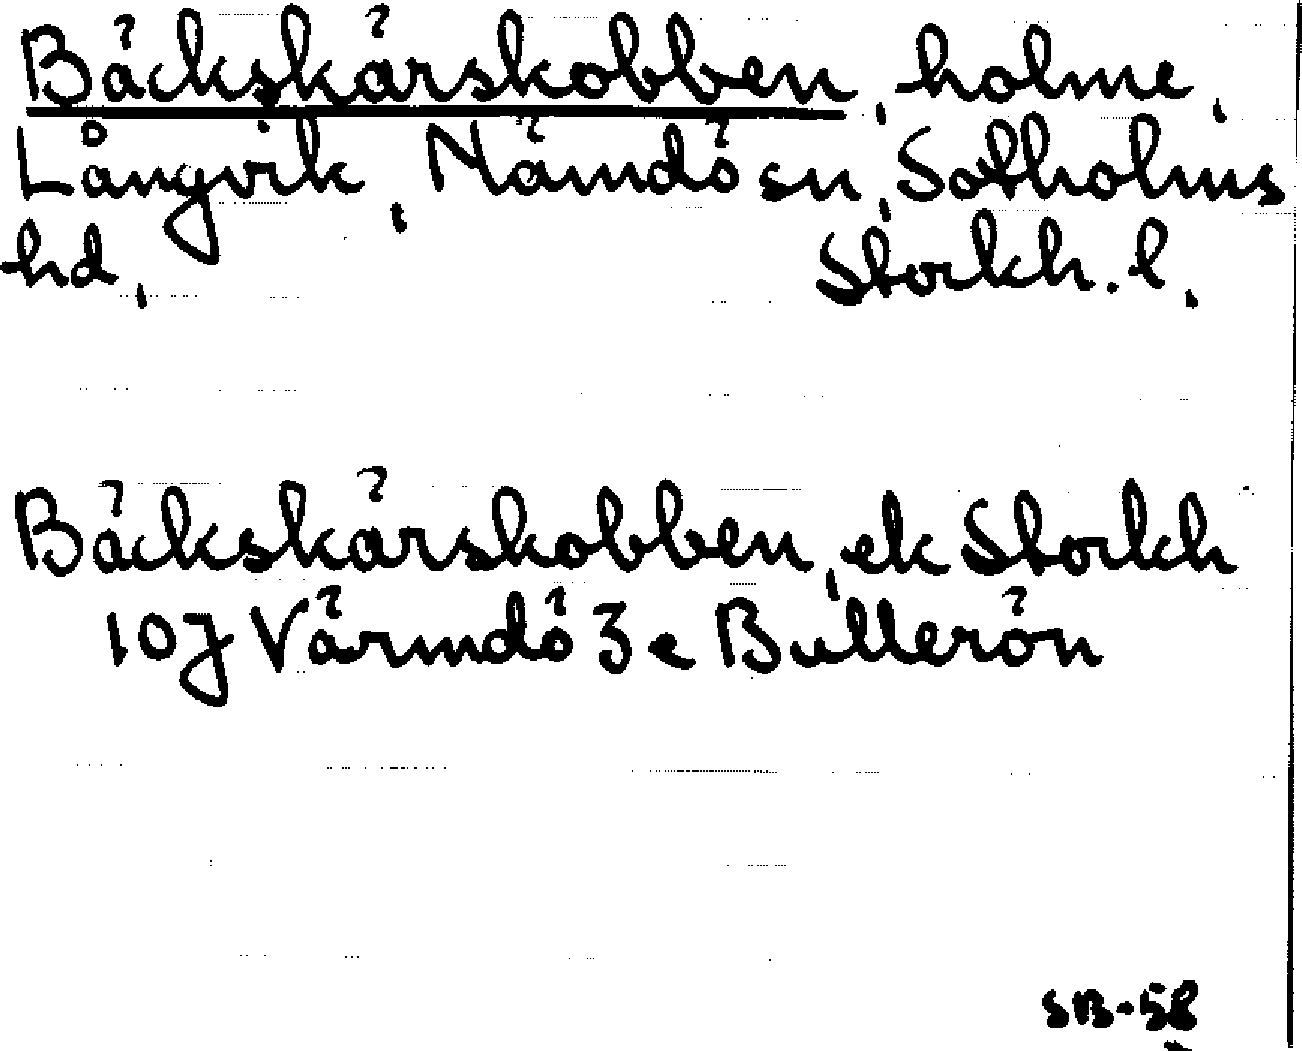 Bäckskärskobben, holme,
Långvik, Nämdö sn, Sotholms
hd, Stockh. l.,
Bäckskärskobben, ek Stockh
107 Värmdö 3 e Bullerön
SB-58